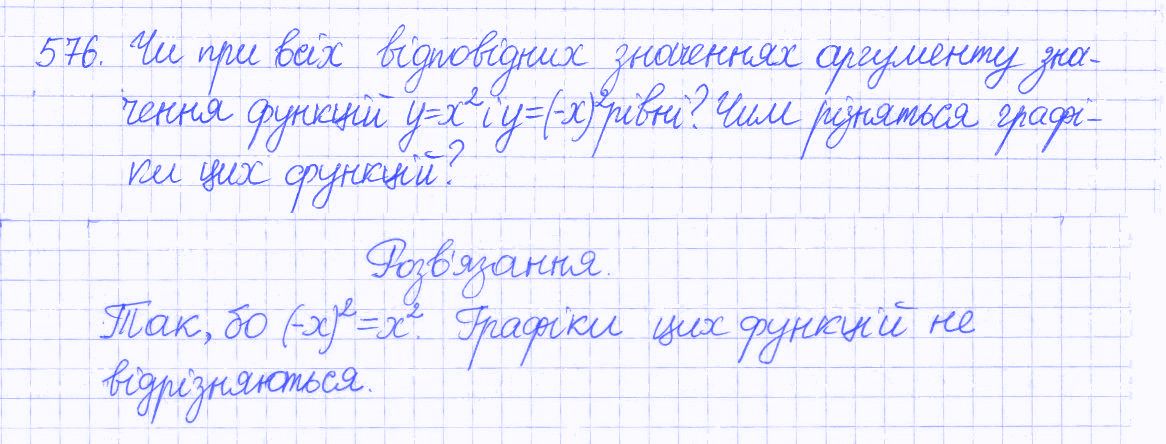 576. Чи при всіх відповідних значеннях аргументу зна-
чення функцій y=x² і y=(-x)² рівні? Чим різняться графі-
ки цих функцій?
Розв'язання.
Так, бо (-x)²=x². Графіки цих функцій не
відрізняються.